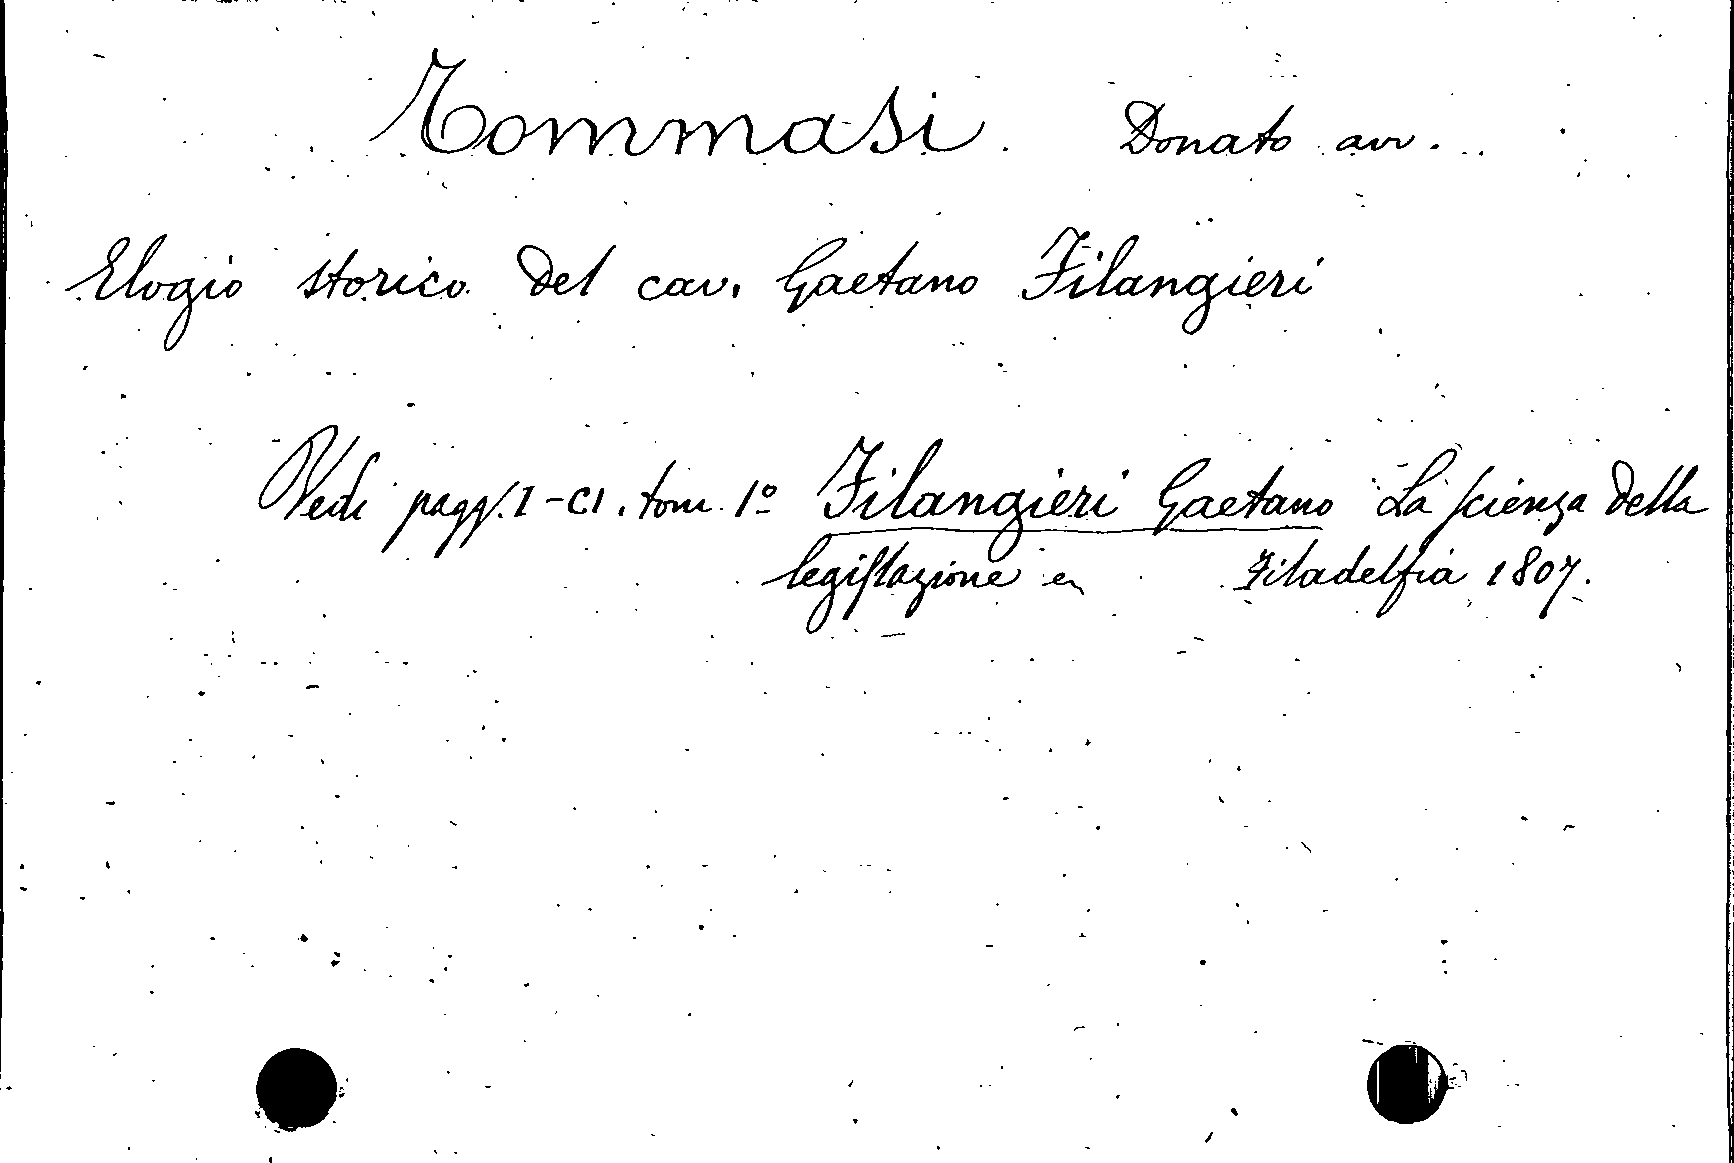 Tommasi Donato avv.
Elogio storico del cav. Gaetano Filangieri
Vedi pagg. I-CI. tom. 1º Filangieri Gaetano La scienza della
legislazione Filadelfia 1807.